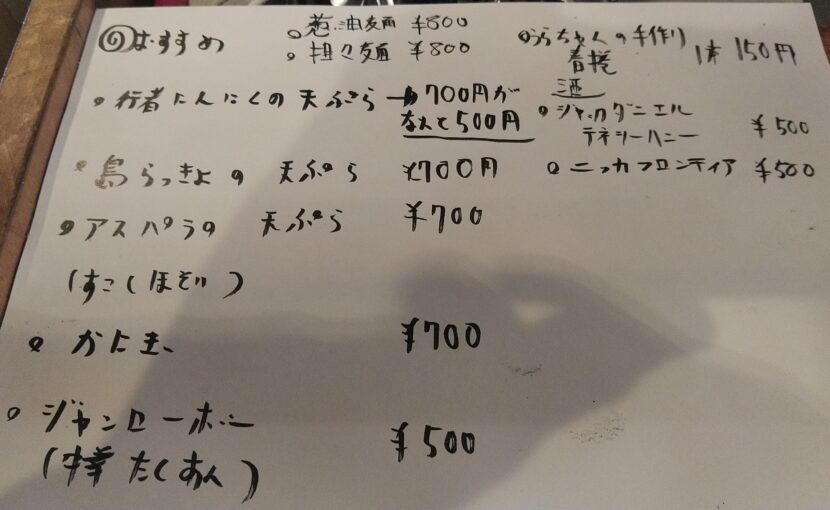 ◎おすすめ
葱油麺 ¥800
担々麺 ¥800
うらちゃんの手作り
春捲 1本 150円
行者にんにくの天ぷら→700円が
なんと500円
島らっきょの天ぷら ¥700円
アスパラの天ぷら ¥700
(すこしほそい)
かにま、 ¥700
ジャンローボー ¥500
(たくあん)
酒
ジャックダニエル
テネシーハニー ¥500
ニッカフロンティア ¥500